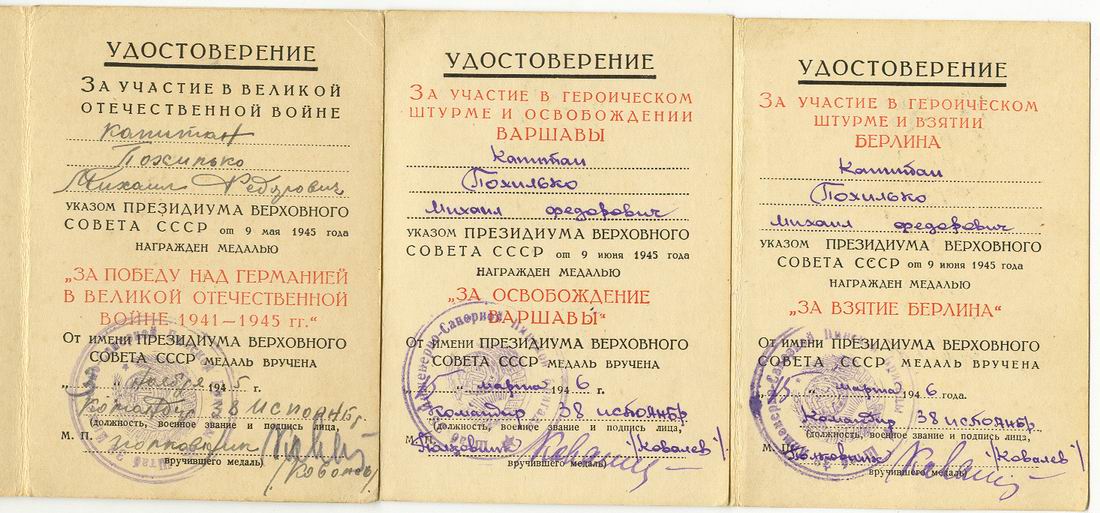 УДОСТОВЕРЕНИЕ
ЗА УЧАСТИЕ В ВЕЛИКОЙ
ОТЕЧЕСТВЕННОЙ ВОЙНЕ
капитан
Похилько
Михаил Федорович
УКАЗОМ ПРЕЗИДИУМА ВЕРХОВНОГО
СОВЕТА СССР от 9 мая 1945 года
НАГРАЖДЕН МЕДАЛЬЮ
„ЗА ПОБЕДУ НАД ГЕРМАНИЕЙ
В ВЕЛИКОЙ ОТЕЧЕСТВЕННОЙ
ВОЙНЕ 1941—1945 гг.“
От имени ПРЕЗИДИУМА ВЕРХОВНОГО
СОВЕТА СССР МЕДАЛЬ ВРУЧЕНА
„ “ ноября 1945 г.
Командир
М. П.
вручившего медаль)
УДОСТОВЕРЕНИЕ
ЗА УЧАСТИЕ В ГЕРОИЧЕСКОМ
ШТУРМЕ И ОСВОБОЖДЕНИИ
ВАРШАВЫ
Капитан
Похилько
Михаил федорович
УКАЗОМ ПРЕЗИДИУМА ВЕРХОВНОГО
СОВЕТА СССР от 9 июня 1945 года
НАГРАЖДЕН МЕДАЛЬЮ
„ЗА ОСВОБОЖДЕНИЕ
ВАРШАВЫ“
От имени ПРЕЗИДИУМА ВЕРХОВНОГО
СОВЕТА СССР МЕДАЛЬ ВРУЧЕНА
марта 1946 г.
Командир 38
(должность, военное звание и подпись лица,
М. П. Полковник /Ковалев/
вручившего медаль)
УДОСТОВЕРЕНИЕ
ЗА УЧАСТИЕ В ГЕРОИЧЕСКОМ
ШТУРМЕ И ВЗЯТИИ
БЕРЛИНА
Капитан
Похилько
Михаил федорович
УКАЗОМ ПРЕЗИДИУМА ВЕРХОВНОГО
СОВЕТА СССР от 9 июня 1945 года
НАГРАЖДЕН МЕДАЛЬЮ
„ЗА ВЗЯТИЕ БЕРЛИНА“
От имени ПРЕЗИДИУМА ВЕРХОВНОГО
СОВЕТА СССР МЕДАЛЬ ВРУЧЕНА
марта 1946 года.
Командир 38
(должность, военное звание и подпись лица,
М. П. Полковник /Ковалев/
вручившего медаль)